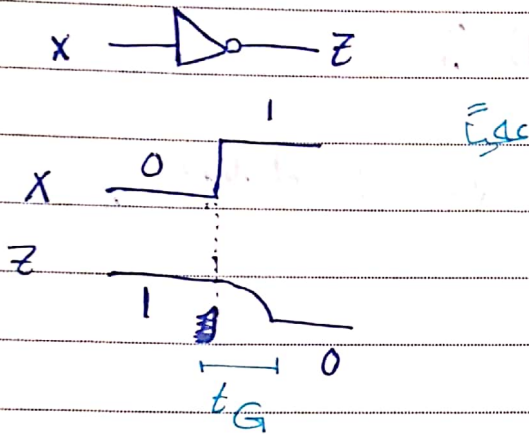 X Z
1
0
X
Z
1
0
t G